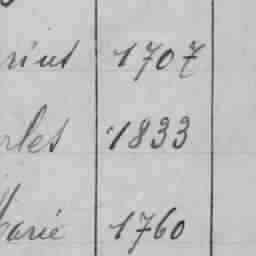 rint 1707
rles 1833
Marie 1760